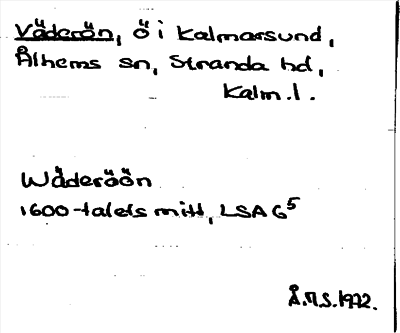 Väderön, ö i Kalmarsund,
Ålhems sn, Stranda hd,
Kalm. l.
Wåderöön
1600-talets mitt, LSA G5
Å.M.S. 1972.